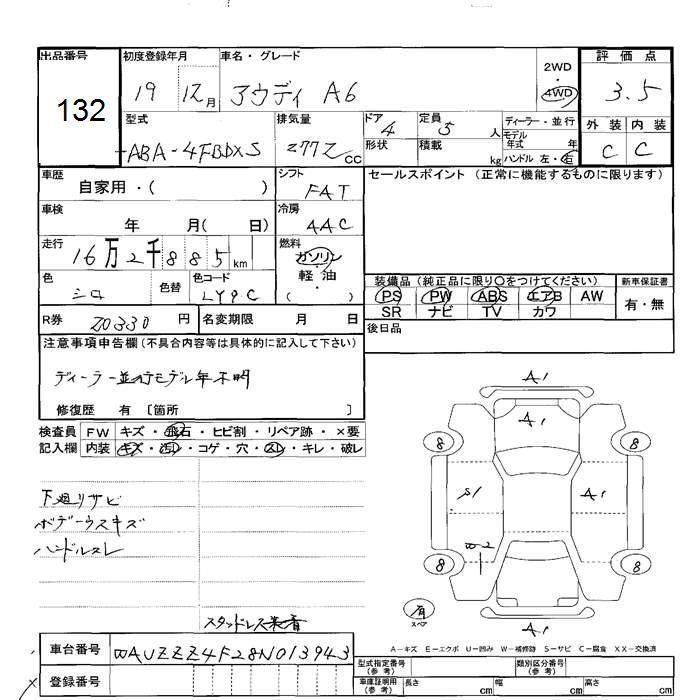 出品番号 初度登録年月 車名・グレード 2WD・4WD 評価点
132 19 12月 アウディ A6 3.5
型式 排気量 ドア 4 定員 5人 ディーラー・並行 外装 内装
ABA-4FBDXS 2772 cc 形状 積載 kg モデル年式 年 C C
ハンドル 左・右
車歴 自家用・( ) シフト FAT セールスポイント (正常に機能するものに限ります)
車検 年 月( 日) 冷房 AAC
走行 16万2千885km 燃料 ガソリン・軽油 ( )
色 シロ 色替 色コード LY9C 装備品(純正品に限り○をつけてください) 新車保証書
PS PW ABS エアB AW 有・無
SR ナビ TV カワ
R券 20330円 名変期限 月 日 後日品
注意事項申告欄 (不具合内容等は具体的に記入して下さい)
ディーラー並行モデル年不明
修復歴 有 〔箇所 〕
検査員 FW キズ・飛石・ヒビ割・リペア跡・×要
記入欄 内装 キズ・汚れ・コゲ・穴・スレ・キレ・破レ
下廻リサビ
ボデーウスキズ
ハンドルスレ
スタッドレス装着
A1
A1
8 8
S1 A1
W2
8 8
有 スペア
A1
A-キズ E-エクボ U-凹み W-補修跡 S-サビ C-腐食 XX-交換済
車台番号 WAUZZZ4F28N013943
型式指定番号(参考) 類別区分番号(参考)
登録番号 車庫証明用(参考) 長さ cm 幅 cm 高さ cm